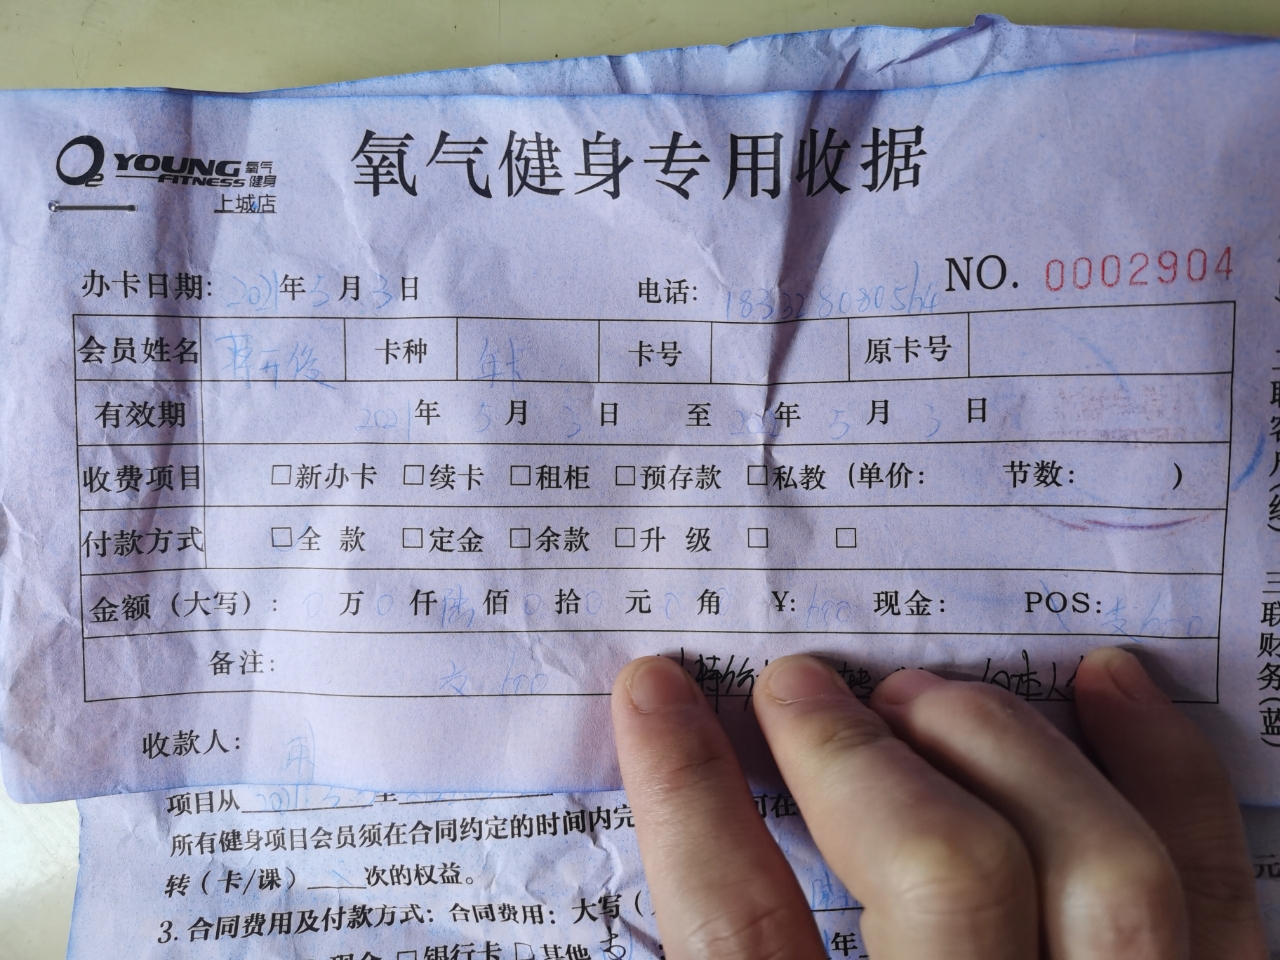 O2 YOUNG FITNESS 氧气健身
上城店
氧气健身专用收据
NO. 0002904
办卡日期: 2021年5月3日 电话:
会员姓名 卡种 年卡 卡号 原卡号
有效期 2021年5月3日 至 年5月3日
收费项目 □新办卡 □续卡 □租柜 □预存款 □私教 (单价: 节数: )
付款方式 □全 款 □定金 □余款 □升 级 □ □
金额 (大写): 0万0仟陆佰0拾0元0角0 ¥: 600 现金: POS: 支600
备注: 支 600
收款人:
项目从 2021.5.3 至
所有健身项目会员须在合同约定的时间内完
转(卡/课) 次的权益。
3. 合同费用及付款方式: 合同费用: 大写(
现金 □银行卡 □其他 支 年
二联客户(红)
三联财务(蓝)
元